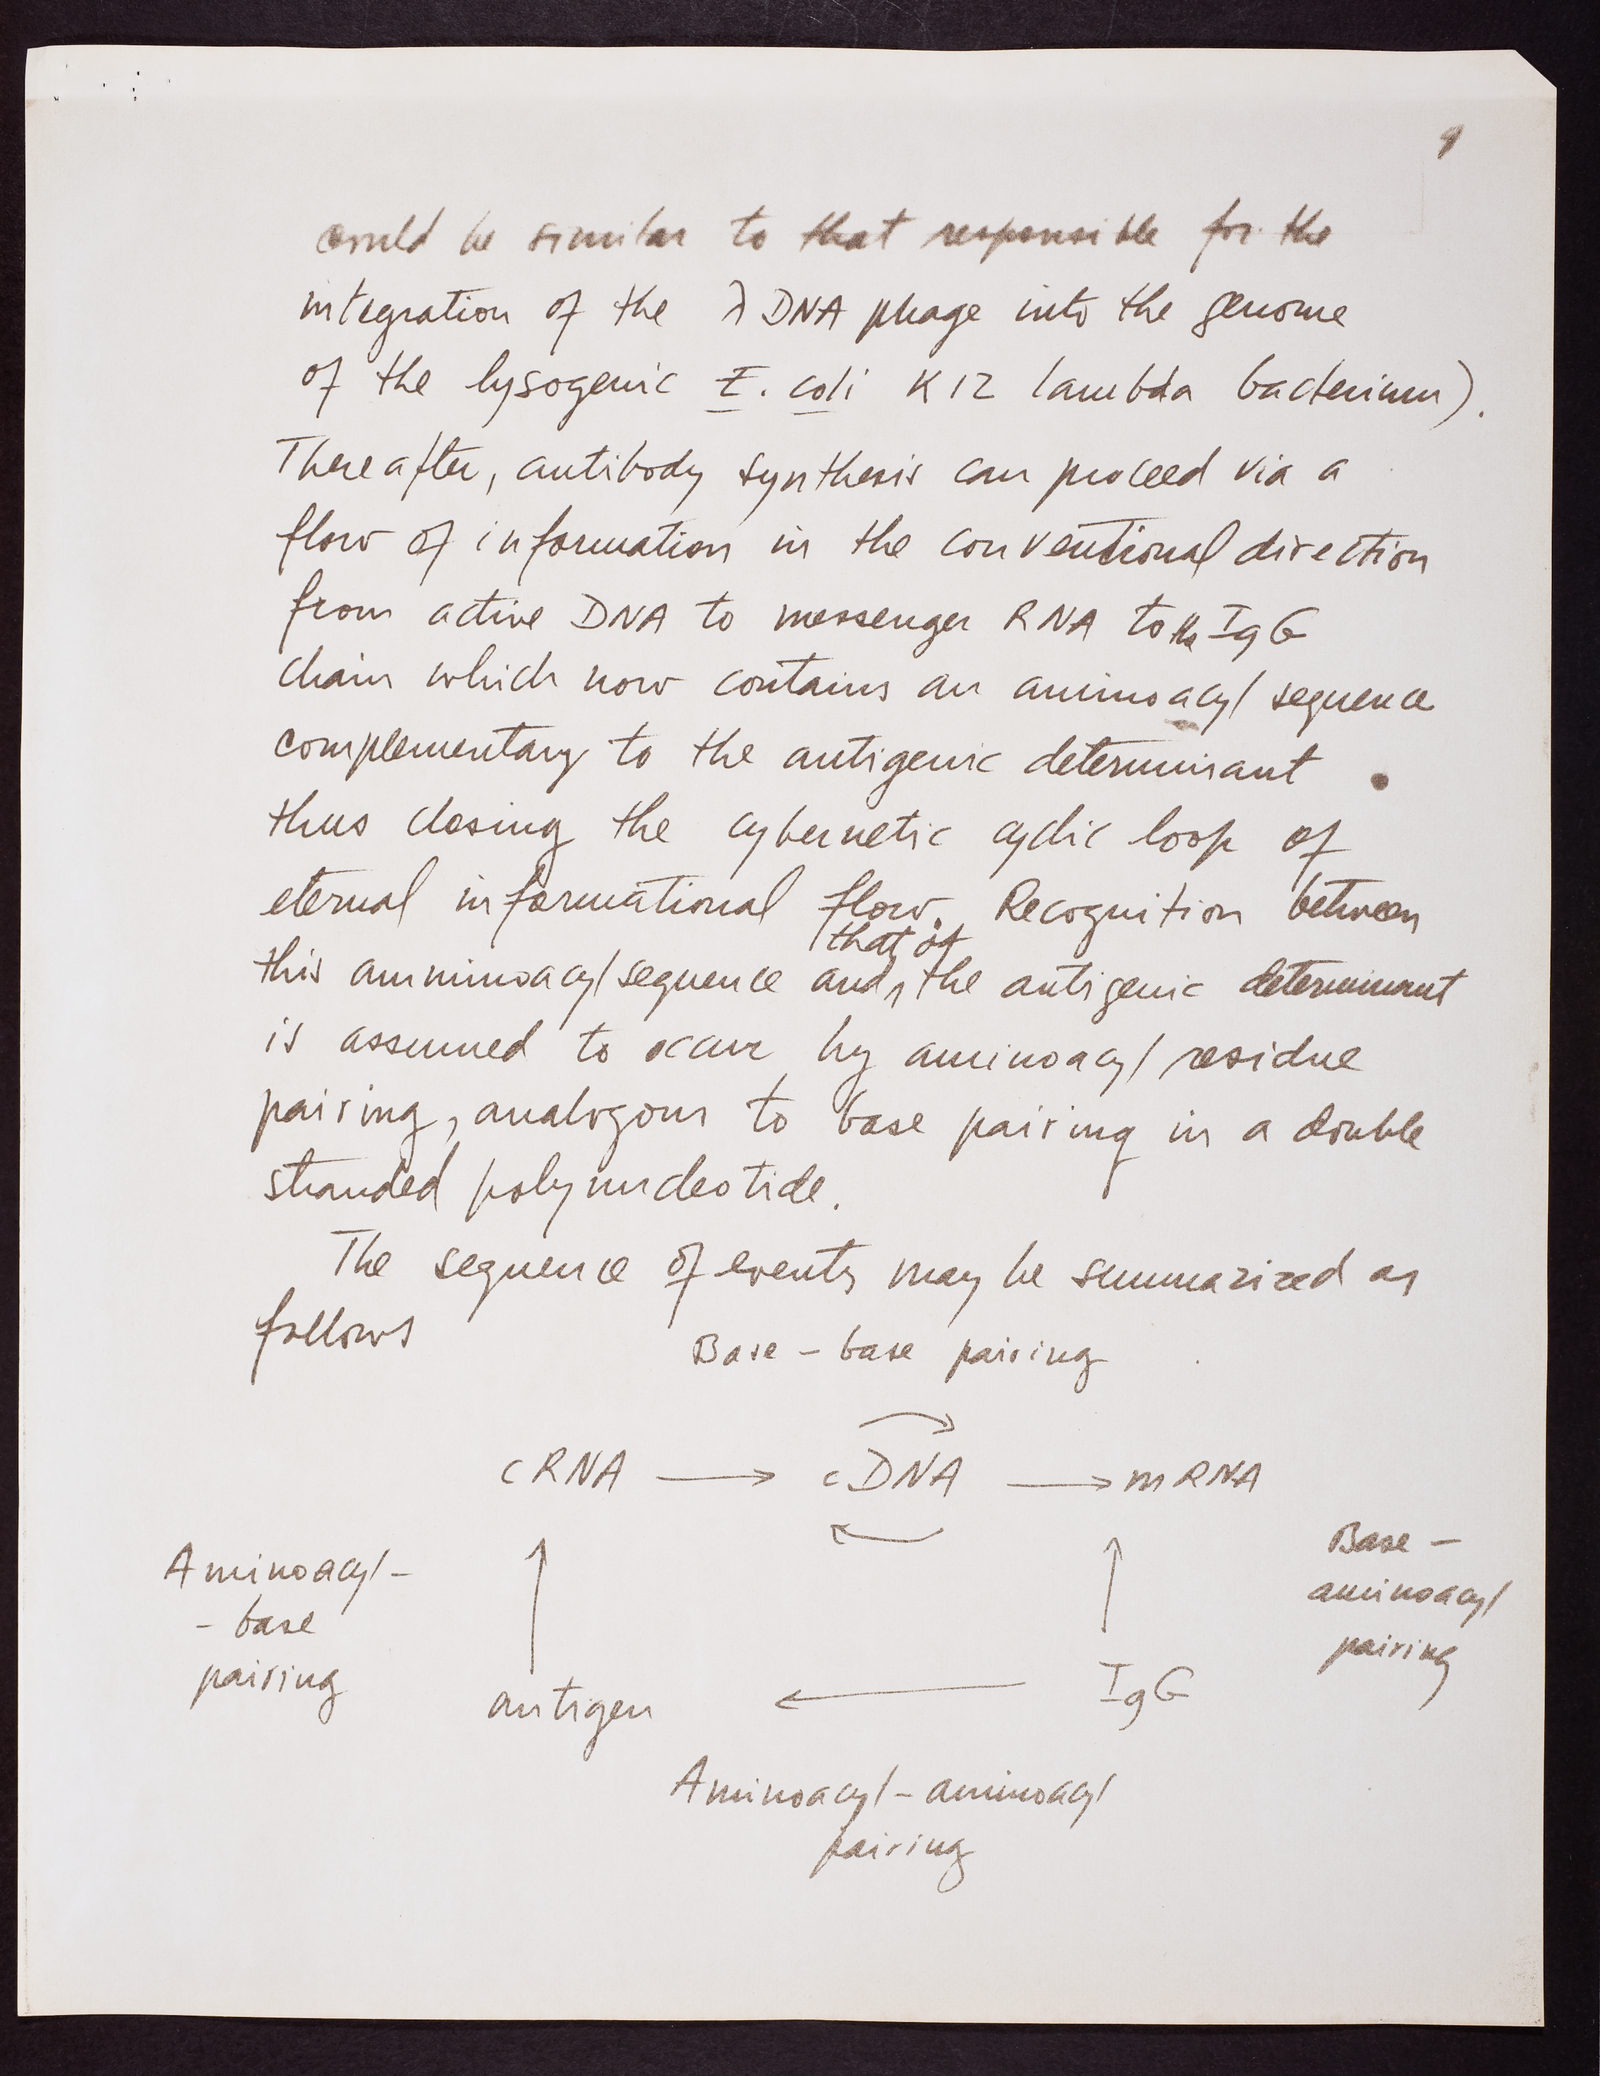 9
could be similar to that responsible for the
integration of the λ DNA phage into the genome
of the lysogenic E. coli K12 lambda bacterium).
Thereafter, antibody synthesis can proceed via a
flow of information in the conventional direction
from active DNA to messenger RNA to the IgG
chain which now contains an aminoacyl sequence
complementary to the antigenic determinant
thus closing the cybernetic cyclic loop of
eternal informational flow. Recognition between
that of
this amminoacyl sequence and, the antigenic determinant
is assumed to occur by aminoacyl residue
pairing, analogous to base pairing in a double
stranded polynucleotide.
The sequence of events may be summarized as
follows
Base – base pairing
cRNA → cDNA → mRNA
Aminoacyl –
– base
pairing
Base –
aminoacyl
pairing
antigen ← IgG
Aminoacyl – aminoacyl
pairing